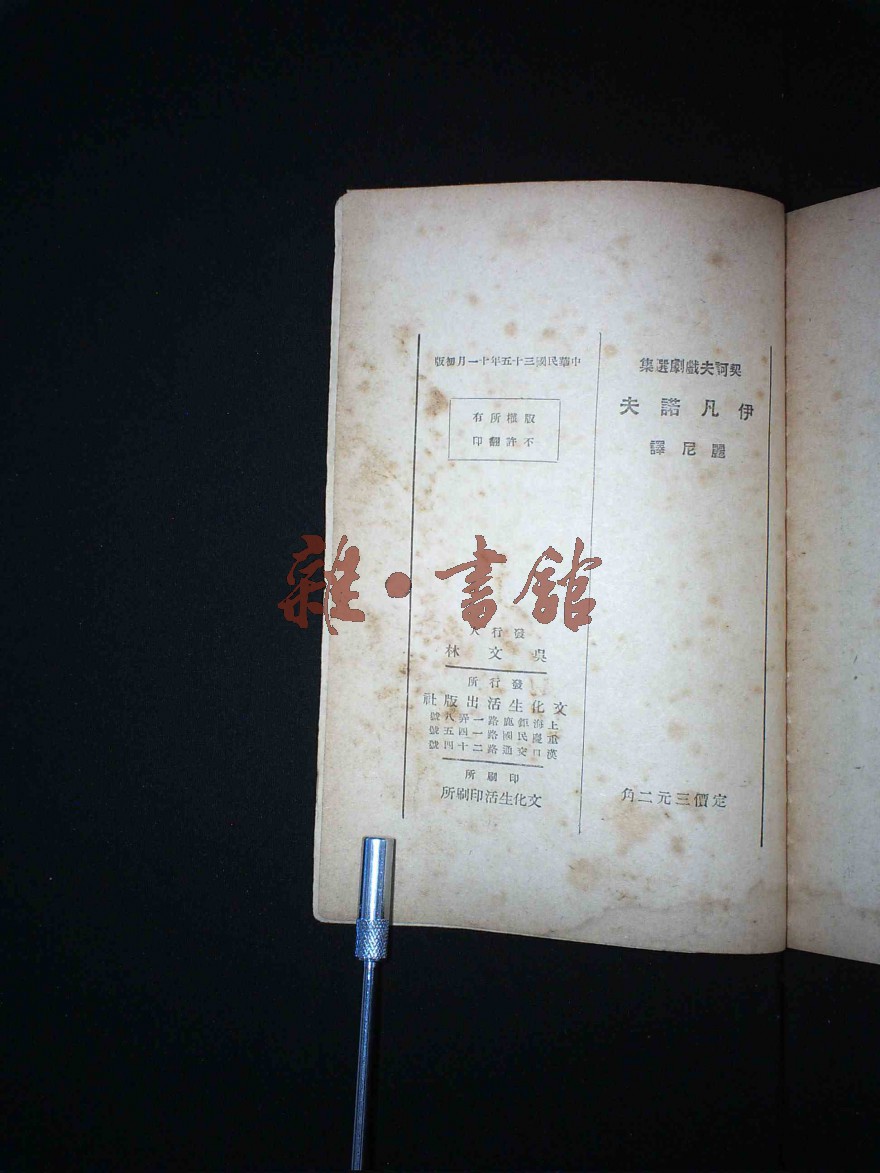 契訶夫戲劇選集
伊凡諾夫
麗尼譯
定價三元二角
中華民國三十五年十一月初版
版權所有
不許翻印
發行人
吳文林
發行所
文化生活出版社
上海鉅鹿路一弄八號
重慶民國路一四五號
漢口交通路二十四號
印刷所
文化生活印刷所
雜·書館